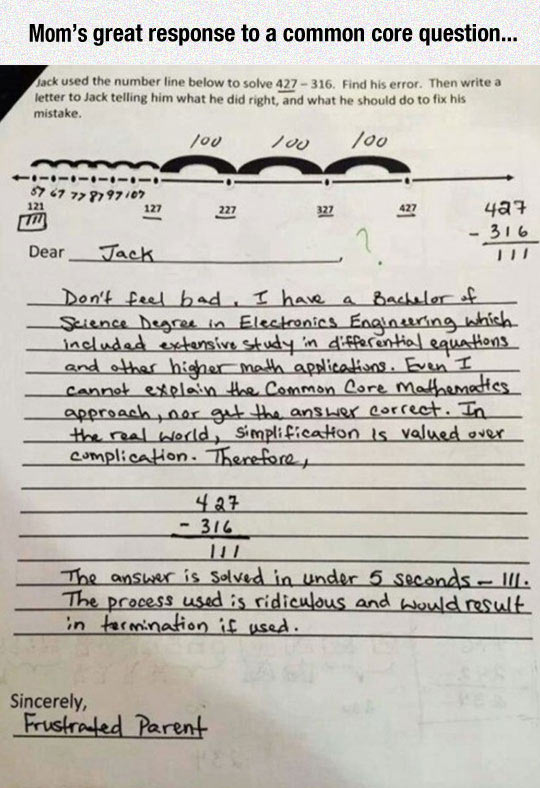 Mom's great response to a common core question...
Jack used the number line below to solve 427 – 316. Find his error. Then write a
letter to Jack telling him what he did right, and what he should do to fix his
mistake.
100 100 100
57 67 77 87 97 107
121 127 227 327 427
111
427
- 316
111
?
Dear Jack ,
Don't feel bad. I have a Bachelor of
Science Degree in Electronics Engineering which
included extensive study in differential equations
and other higher math applications. Even I
cannot explain the Common Core Mathematics
approach, nor get the answer correct. In
the real world, simplification is valued over
complication. Therefore,
427
- 316
111
The answer is solved in under 5 seconds – 111.
The process used is ridiculous and would result
in termination if used.
Sincerely,
Frustrated Parent